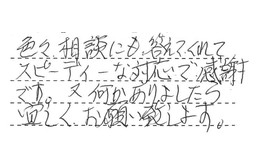 色々相談にも答えてくれて
スピーディーな対応で感謝
です。又何かありましたら
宜しくお願い致します。